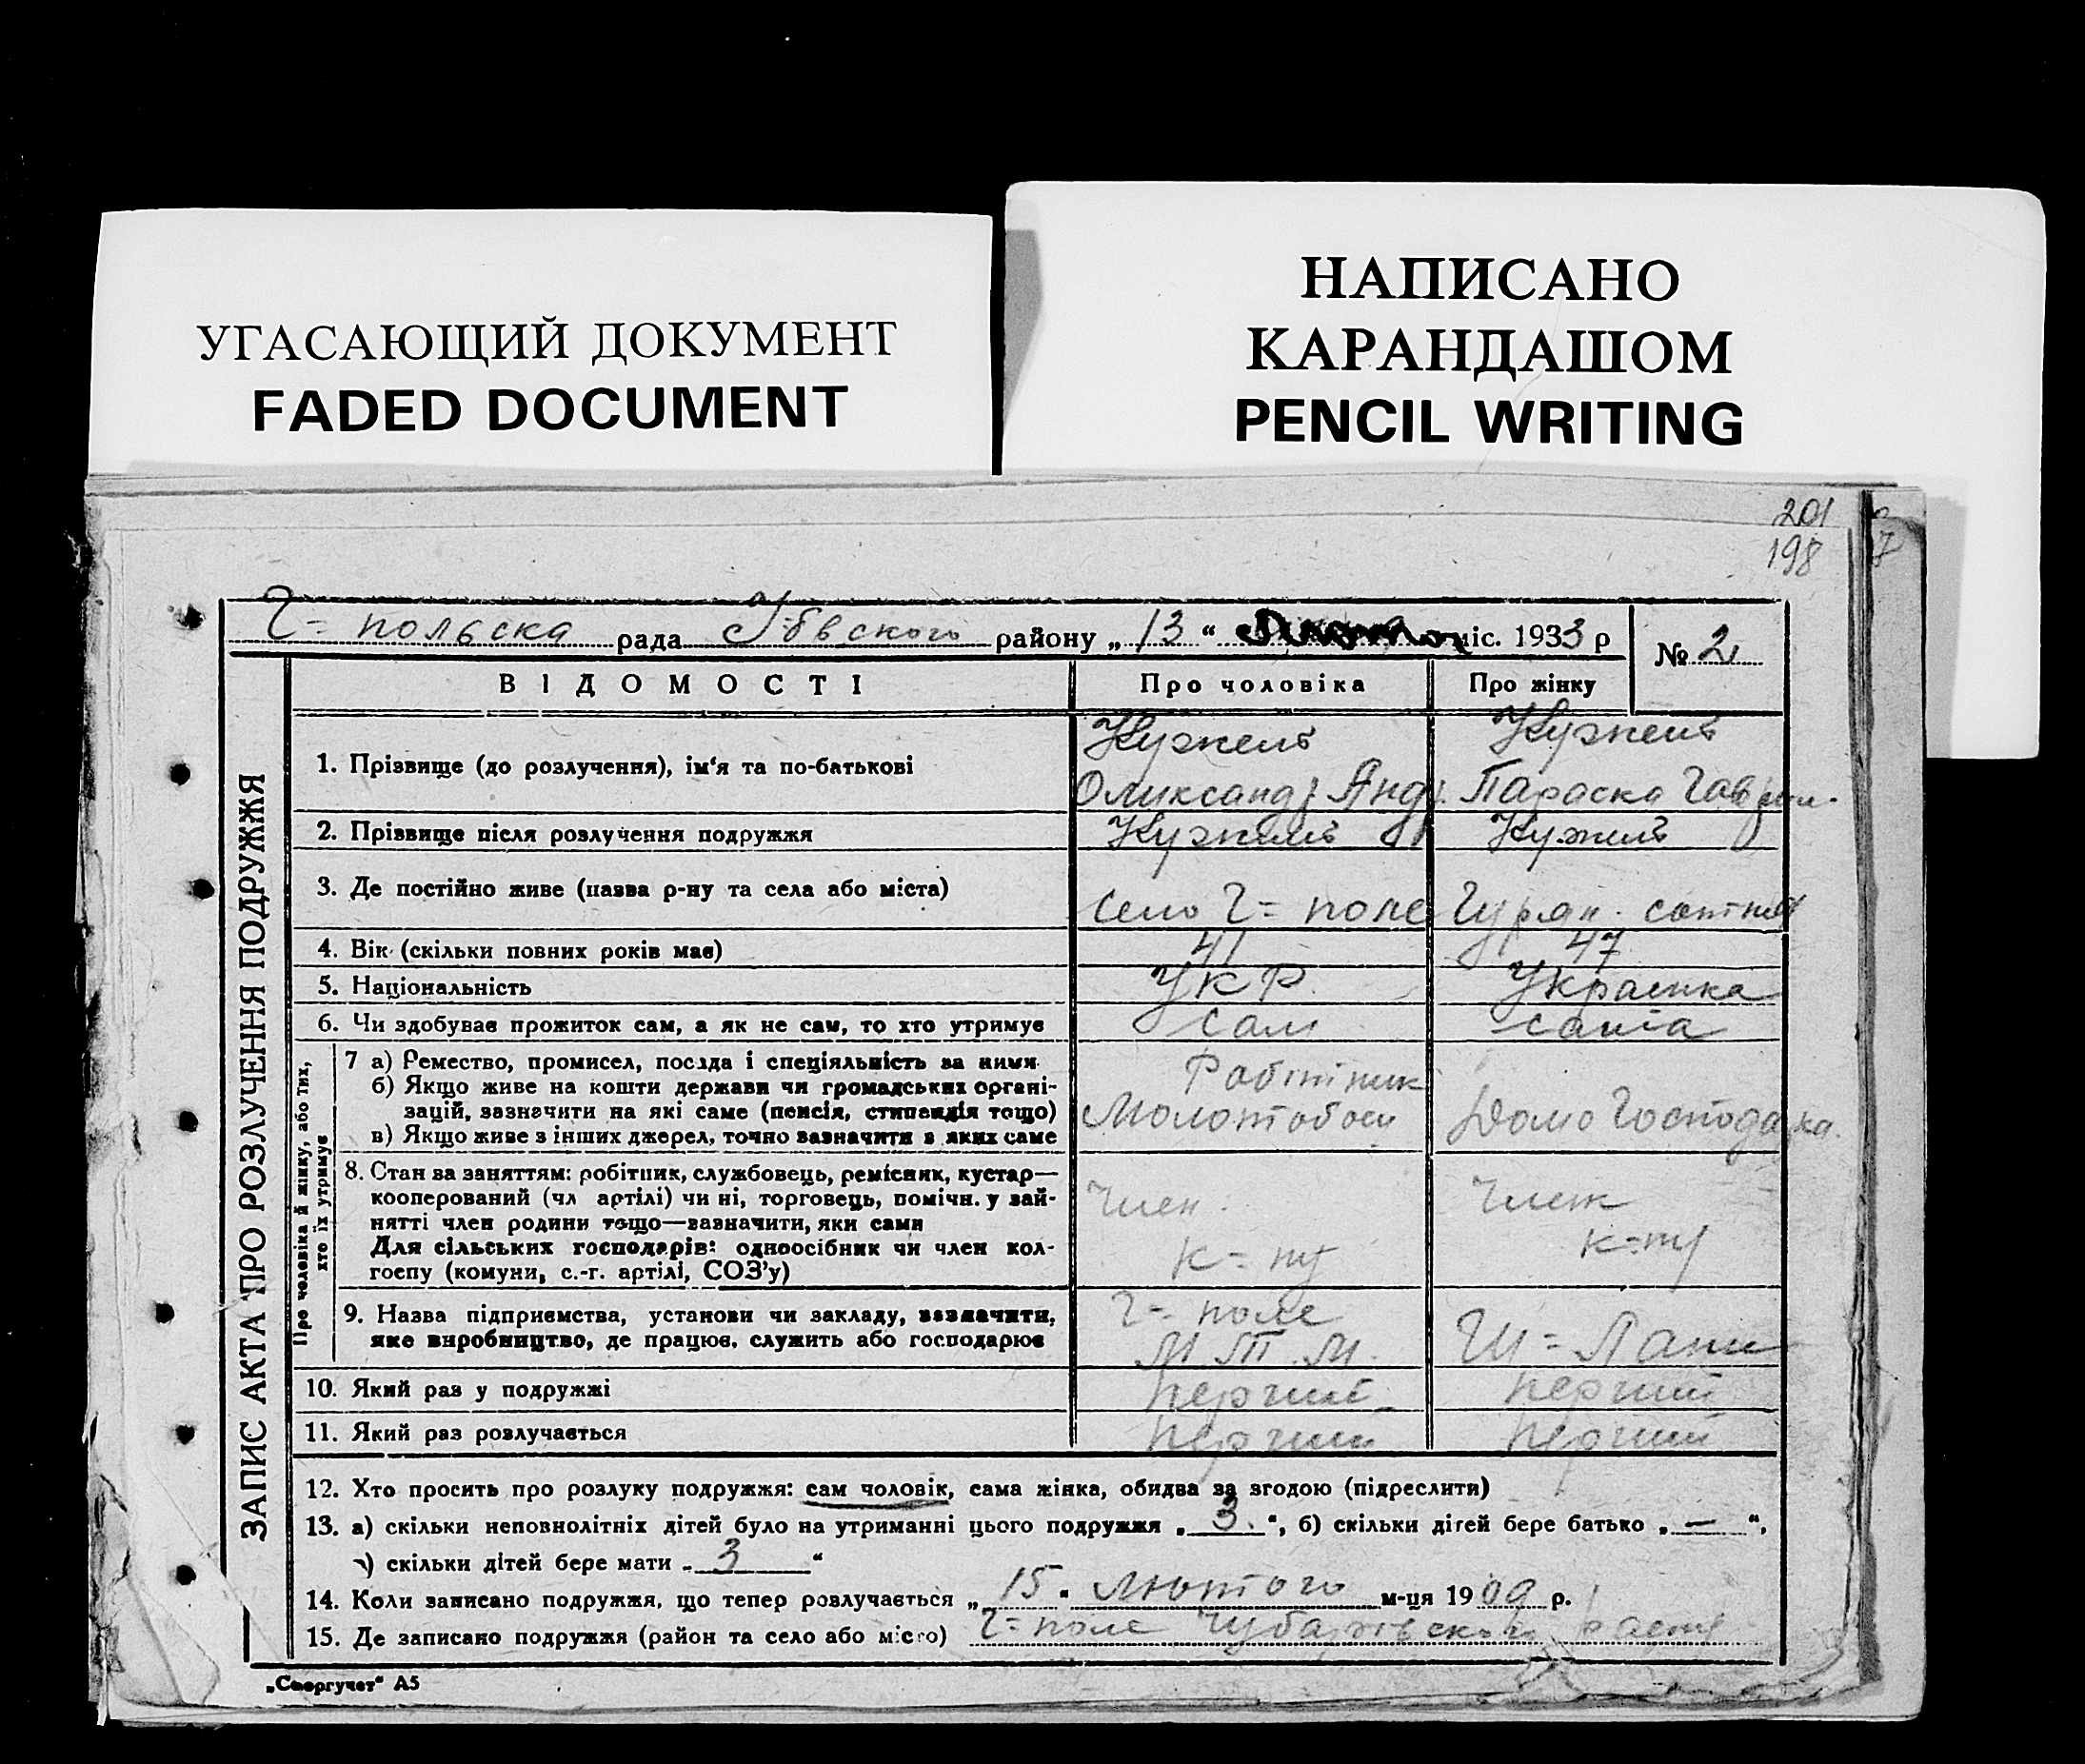 УГАСАЮЩИЙ ДОКУМЕНТ
FADED DOCUMENT
НАПИСАНО
КАРАНДАШОМ
PENCIL WRITING
201
198
7
Г= польска рада района „13“ міс. 1933 р
№ 2
ЗАПИС АКТА ПРО РОЗЛУЧЕННЯ ПОДРУЖЖЯ
ВІДОМОСТІ Про чоловіка Про жінку
1. Прізвище (до розлучення), ім‘я та по-батькові Кужель Кужель
Олександр Андр. Параска Гаврил.
2. Прізвище після розлучення подружжя Кужель Кужель
3. Де постійно живе (назва р-ну та села або міста) село Г= поле
4. Вік (скільки повних років має) 41 47
5. Національність УКР. Украинка
6. Чи здобуває прожиток сам, а як не сам, то хто утримує сам сама
Про чоловіка й жінку, або тих, хто їх утримує
7 а) Ремество, промисел, посада і спеціяльність за ними Робітник
б) Якщо живе на кошти держави чи громадських організацій, зазначити на які саме (пенсія, стипендія тощо) Молотобоец Домо Господарка.
в) Якщо живе з інших джерел, точно зазначити в яких саме
8. Стан за заняттям: робітник, службовець, ремісник, кустар—
кооперований (чл артілі) чи ні, торговець, помічн. у зай- Член Член
нятті член родини тощо—зазначити, яки сами
Для сільських господарів: одноосібник чи член кол- к=пу к=пу
госпу (комуни, с.-г. артілі, СОЗ'у)
9. Назва підприємства, установи чи закладу, зазначити, Г= поле
яке виробництво, де працює, служить або господарює М.Т.М. Ш= Лани
10. Який раз у подружжі перший перший
11. Який раз розлучається перший перший
12. Хто просить про розлуку подружжя: сам чоловік, сама жінка, обидва за згодою (підреслити)
13. а) скільки неповнолітніх дітей було на утриманні цього подружжя „3.“, б) скільки дітей бере батько „—“,
в) скільки дітей бере мати „3“
14. Коли записано подружжя, що тепер розлучається „15“ лютого м-ця 1909 р.
15. Де записано подружжя (район та село або місто) Г=поле
„Союзоргучет“ А5